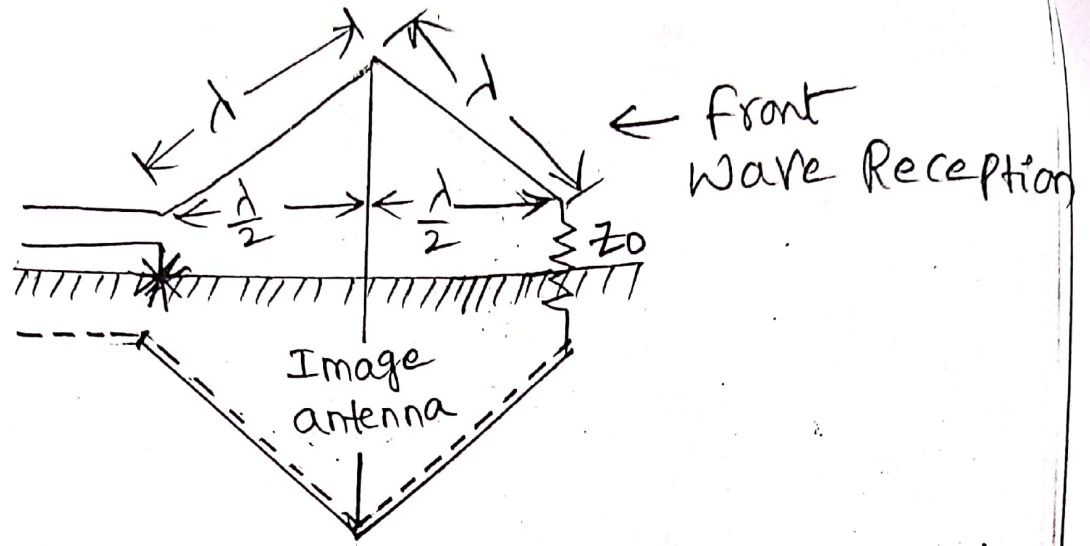 λ
λ
← Front
Wave Reception
λ/2
λ/2
Z0
Image
antenna